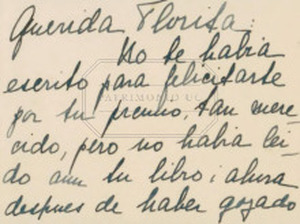 Querida Florita:
No te habia
escrito para felicitarte
por tu premio, tan mere-
cido, pero no habia lei-
do aun tu libro; ahora
despues de haber gozado
PATRIMONIO UC